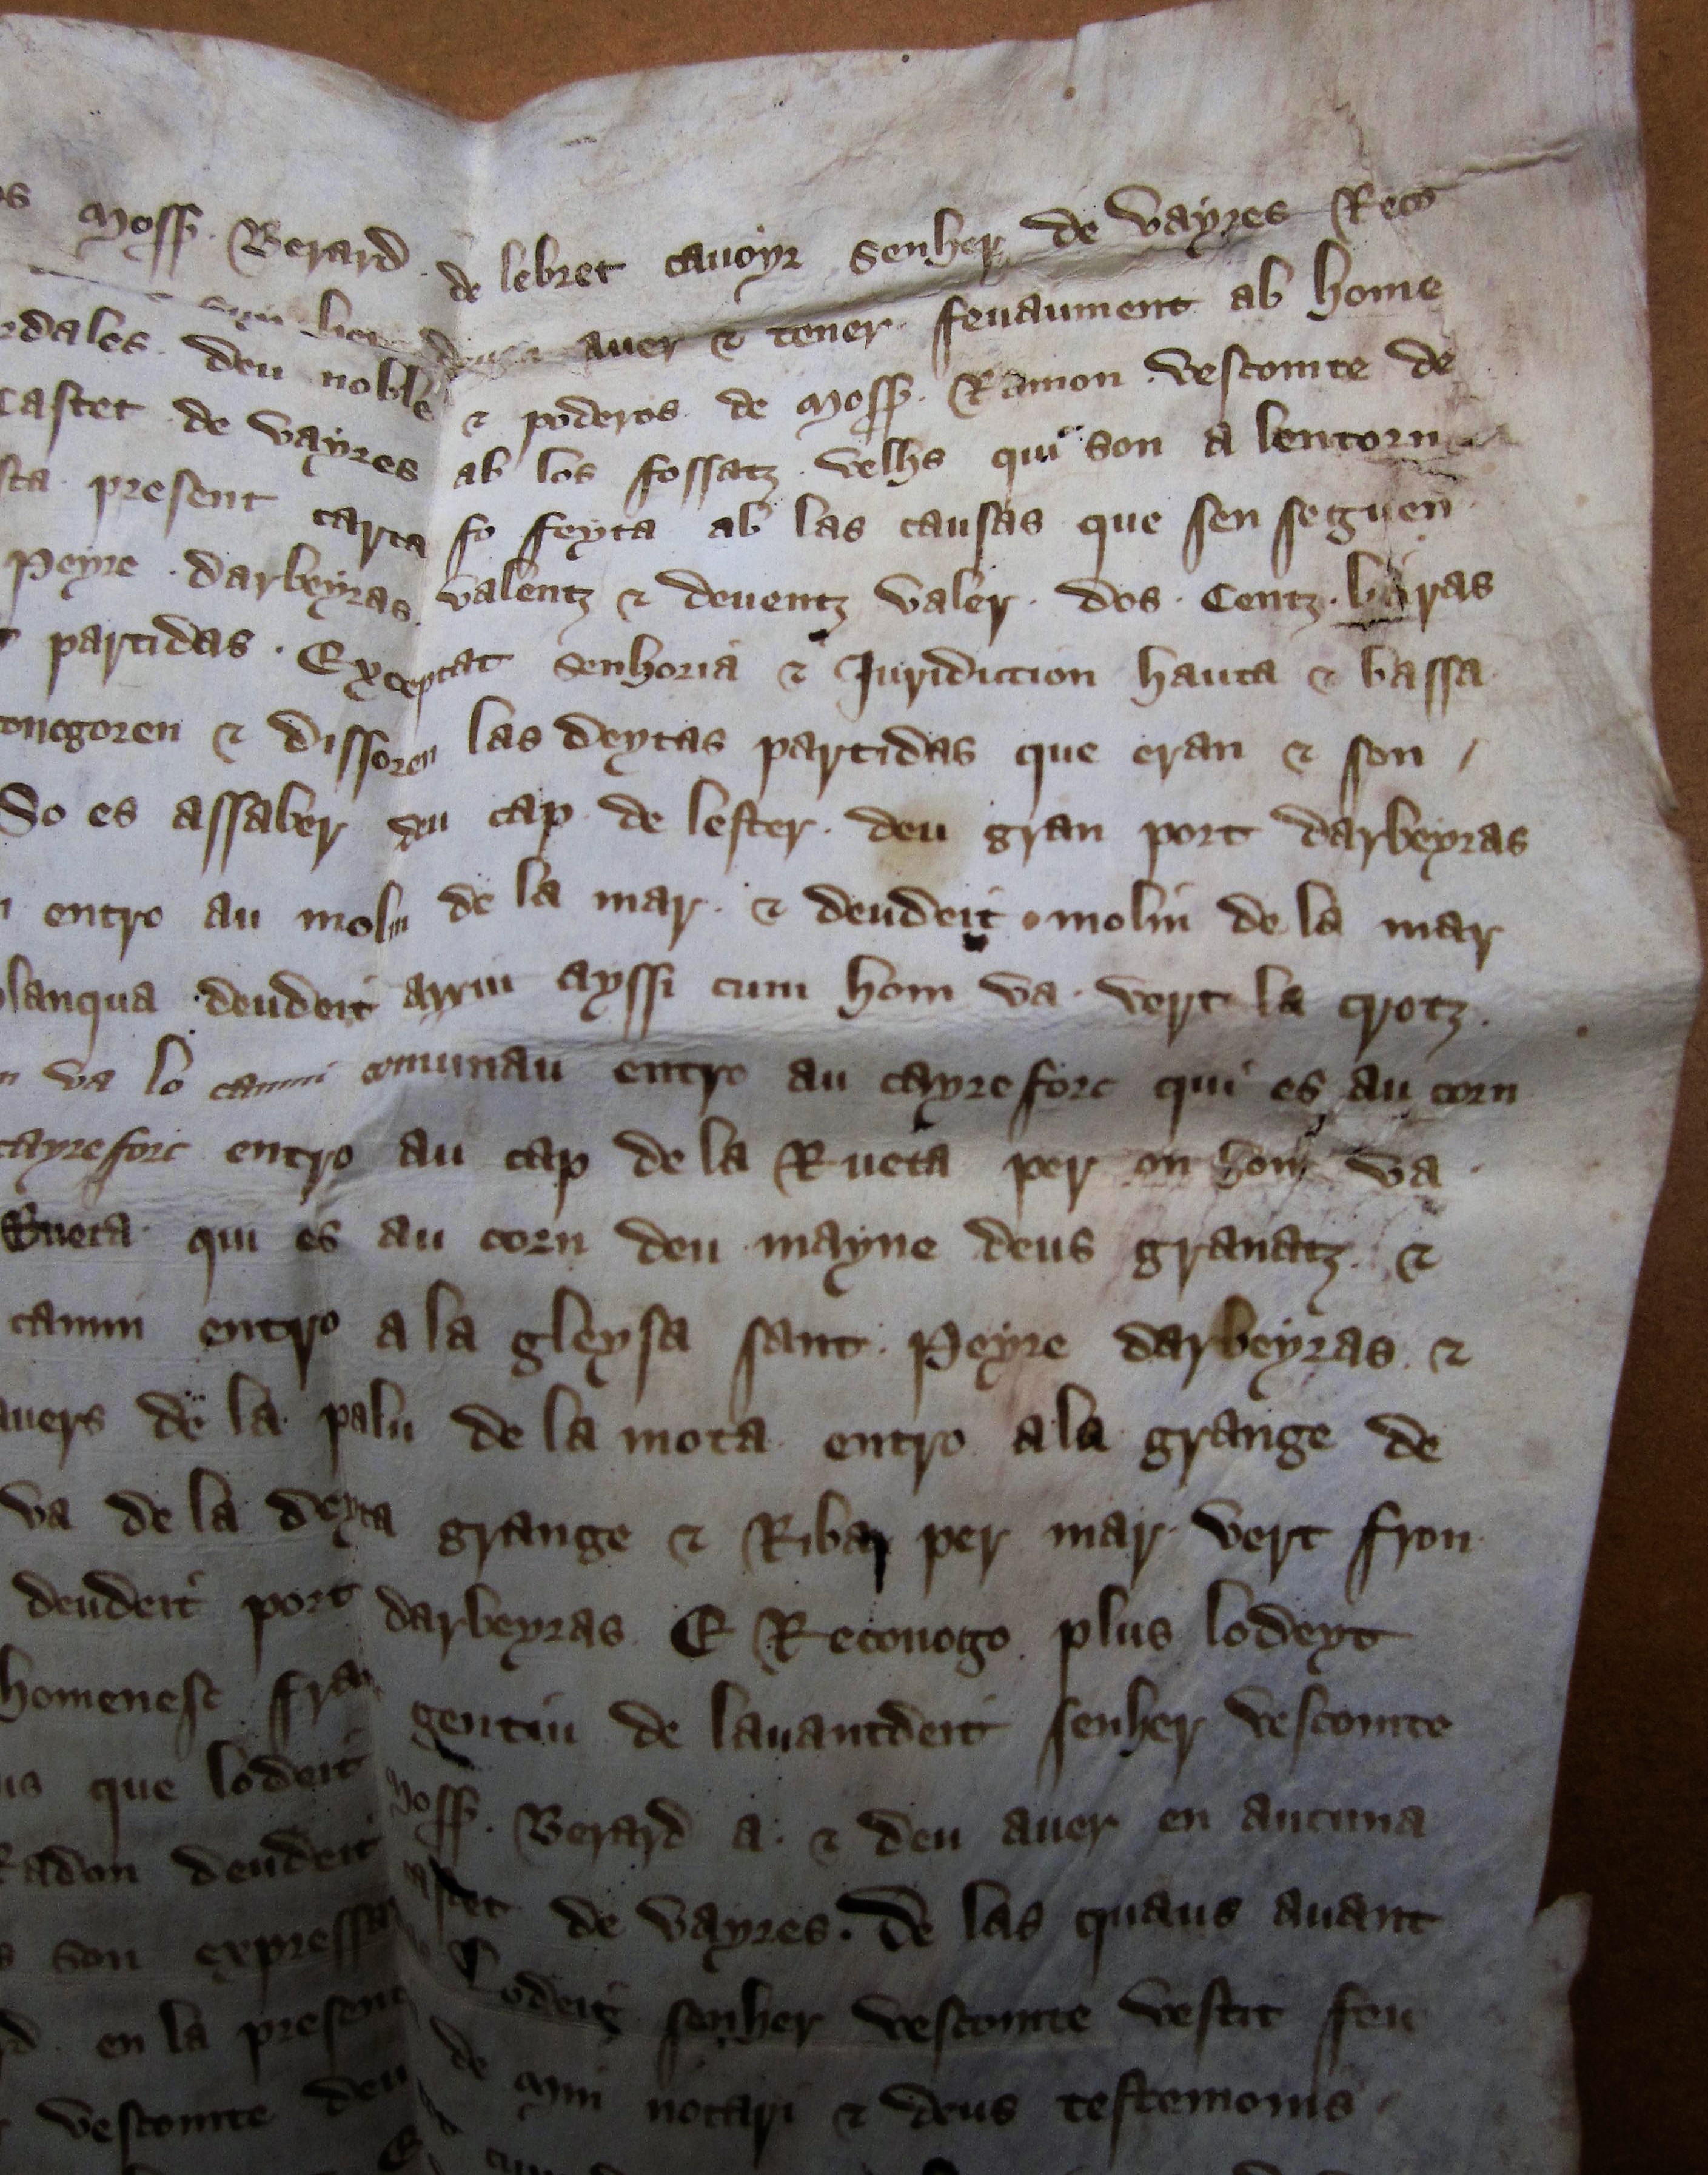 Moss. Berard de lebret cauoyr Senher de vayres Reco
auer & tener feuaument ab home
dales deu noble & poderos de Moss. Ramon vescomte de
castet de vayres ab los fossatz velhs qui son a lentorn
sta present carta fo feyta ab las causas que sen seguen
Peyre darbeyras valentz & deuentz valer. dos. Centz. liuras
partidas. Exceptat senhoria & Juridiction hauta & bassa
onegoren & dissoren las deytas partidas que eran & son /
So es assaber deu cap de lester. deu gran port darbeyras
entro au molin de la mar. & deudeit molin de la mar
planqua deudeit arriu ayssi cum hom va vert la crotz.
va lo camin comunau entro au cayreforc qui es au corn
cayreforc entro au cap de la Rueta per on hom va
Rueta qui es au corn deu mayne deus granatz &
camin entro a la gleysa sant Peyre darbeyras &
auers de la palu de la mota entro a la grange de
va de la deyta grange & Ribar per mar vert fron
deudeit port darbeyras E Reconogo plus lodeyt
homenesc gentiu de lauantdeit senher vescomte
us que lodeit Moss. Berard a. & deu auer en aucuna
deudeit castet de vayres. De las quaus auant
son expressa Lodeit senher vescomte vestit feu
en la present de min notari & deus testemonis
vescomte deu